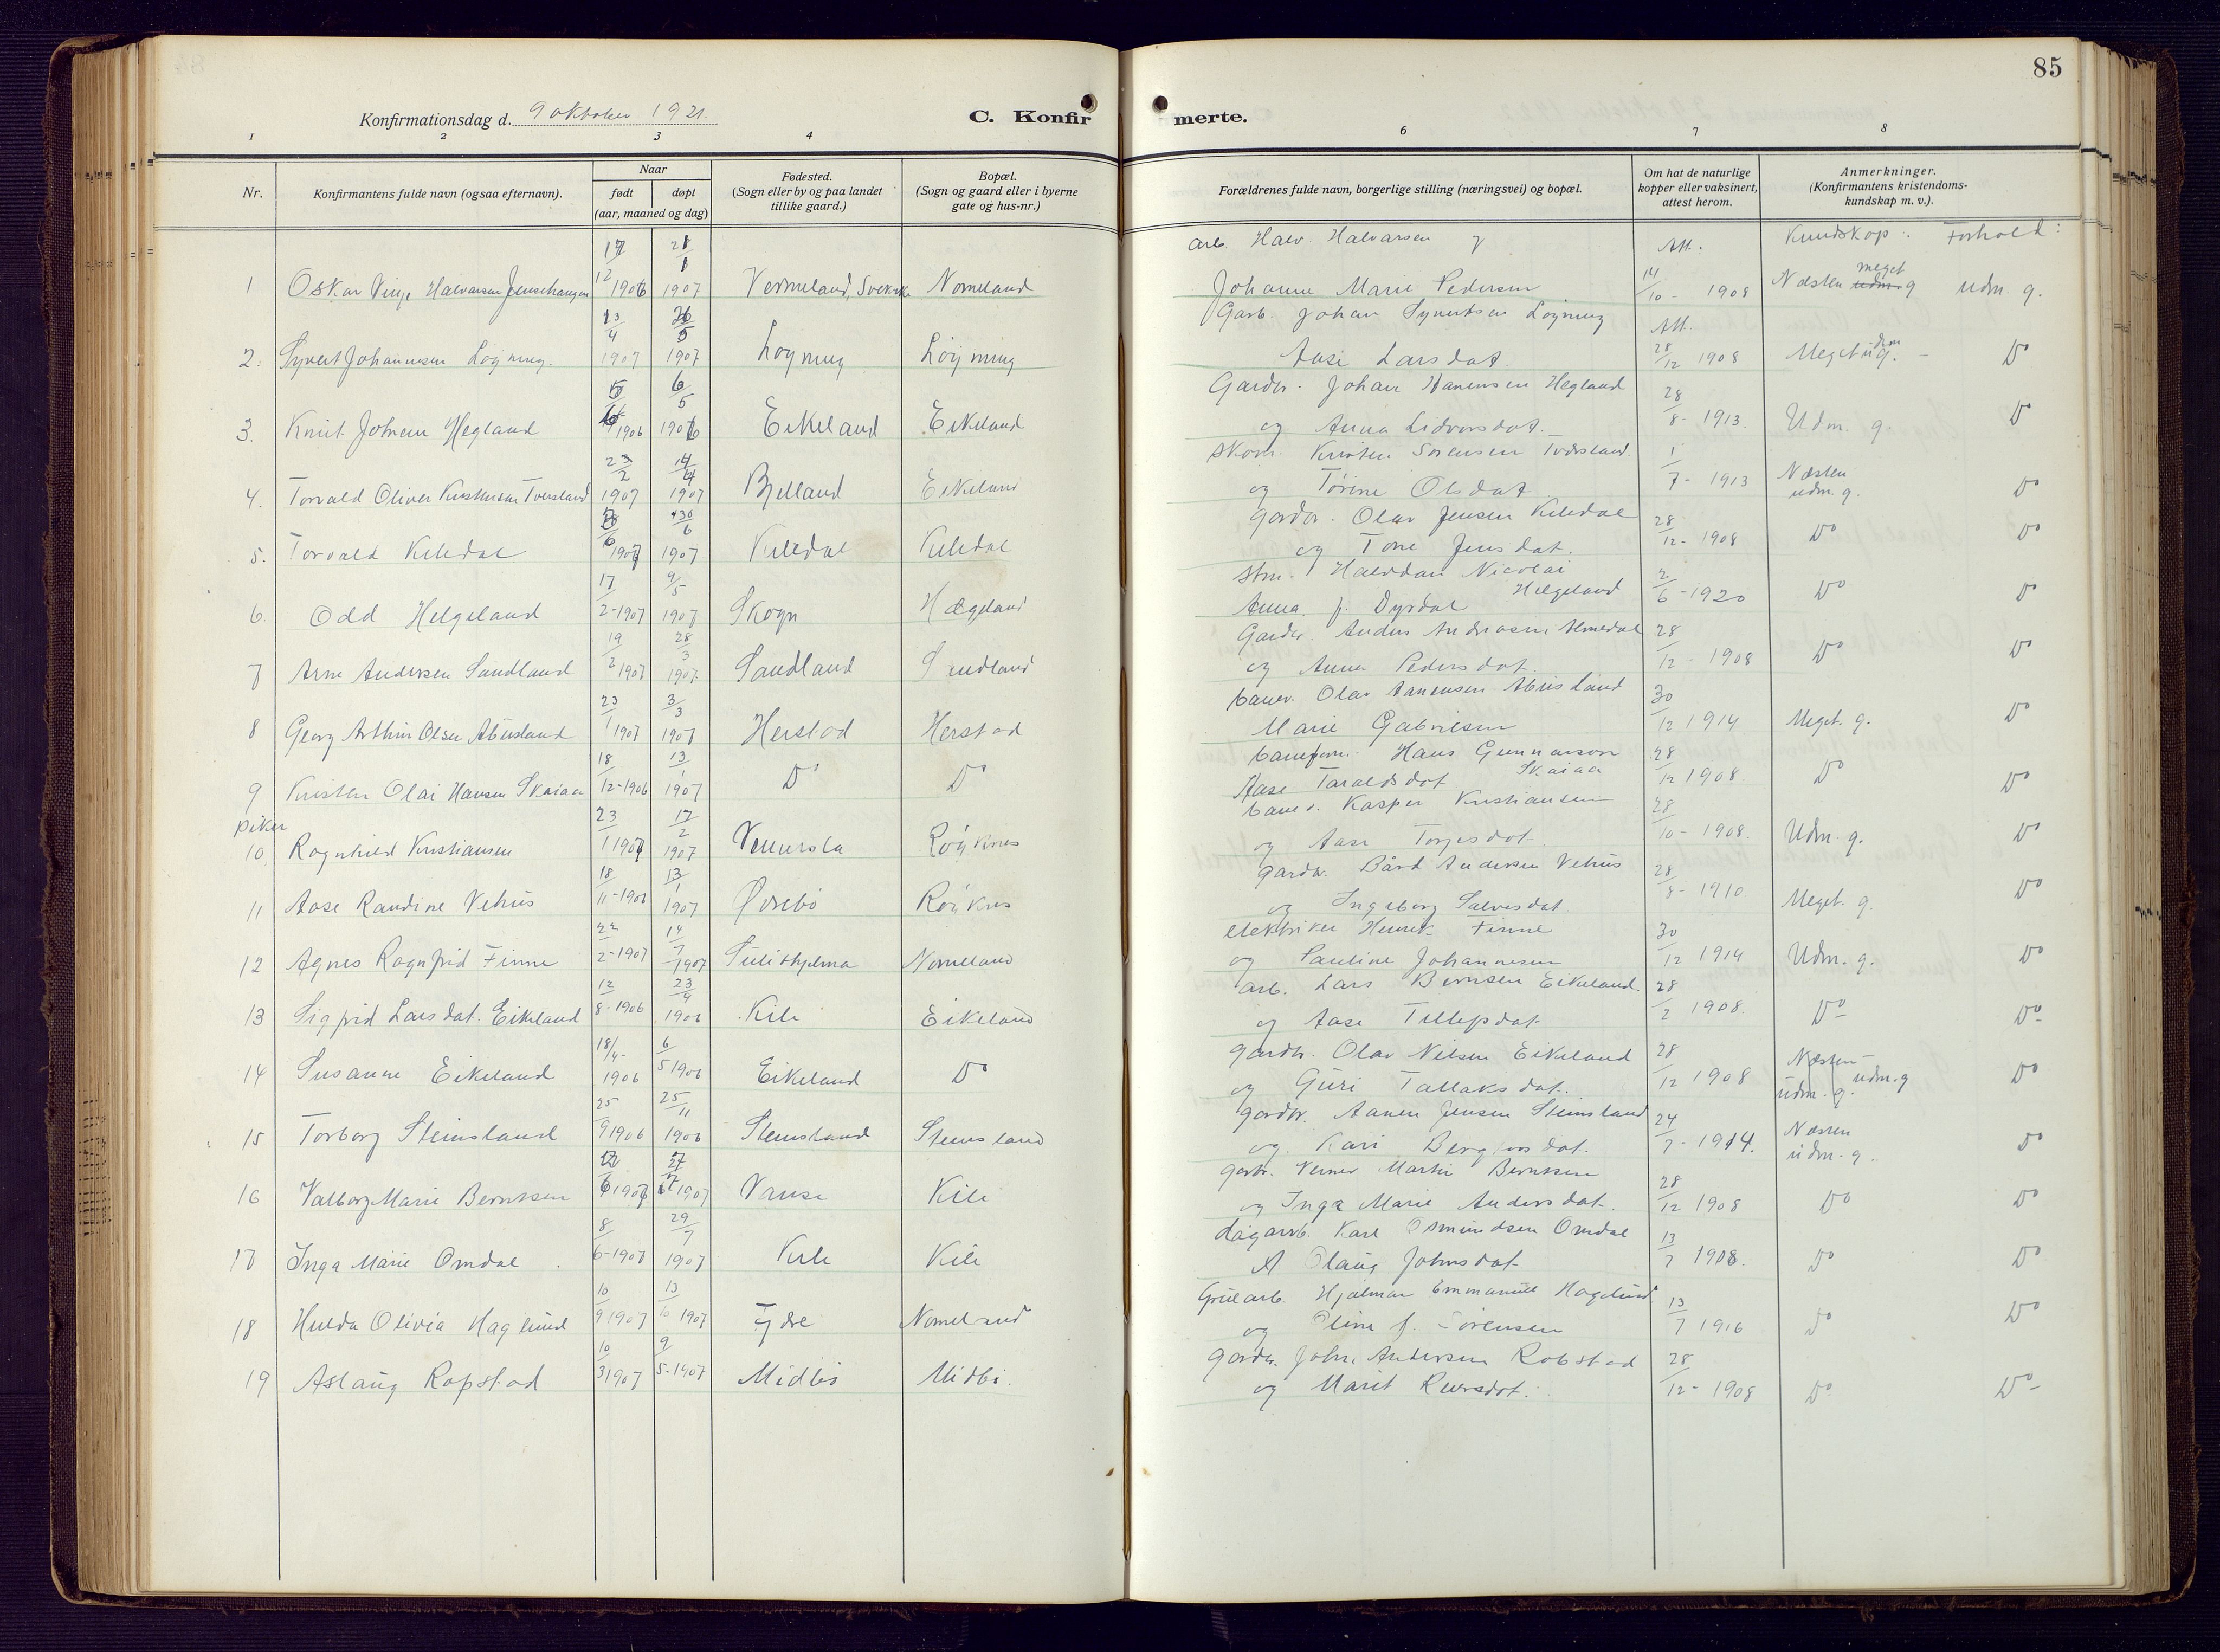 85
Konfirmationsdag d. 9 oktober 1921.
C. Konfirmerte.
1 2 3 4 6 7 8
Nr.
Konfirmantens fulde navn (ogsaa efternavn).
Naar
født
døpt
(aar, maaned og dag)
Fødested.
(Sogn eller by og paa landet
tillike gaard.)
Bopæl.
(Sogn og gaard eller i byerne
gate og hus-nr.)
Forældrenes fulde navn, borgerlige stilling (næringsvei) og bopæl.
Om hat de naturlige
kopper eller vaksinert,
attest herom.
Anmerkninger.
(Konfirmantens kristendoms-
kundskap m. v.).
arb. Halv. Halvarsen Att. Kundskap: Forhold:
1 Oskar Halvarsen 12 1906 1907 Vermeland, Nomeland Johanne Marie Pedersen 14/10 - 1908 Næsten meget g udm. g.
Garb. Johan Syvertsen Løyning Att.
2. Syvert Johannesen Løyning. 13/4 1907 26/5 1907 Løyning Løyning Aase Larsdat. 28/12 1908 Meget g. Do
Gardbr. Johan Hegland
3. Knut Johnsen Hegland 1906 6/5 1906 Eikeland Eikeland og Anna Lidvorsdat. 28/8 - 1913. Udm. g. Do
Kristen Sørensen Tversland.
4. Torvald Oliver Kristensen Tversland 23/2 1907 14/4 1907 Bjelland Eikeland og Torine Olsdat 1/7 - 1913 Næsten udm. g. Do
gardbr. Olav Jensen Kiledal
5. Torvald Kiledal 1907 30/6 1907 Kiledal Kiledal og Tone Jensdat. 28/12 - 1908 Do Do
Halvdan Nicolai Helgeland
6. Odd Helgeland 17/2 - 1907 9/5 1907 Skogn Hægeland Anna f. Dyrdal 2/6 - 1920 Do Do
Gardbr. Anders Andreasen
7 Arne Andersen Sandland 19/2 1907 28/3 1907 Sandland Sandland og Anna Pedersdat. 28/12 - 1908 Do Do
banev. Olav Aanensen Abusland
8 Georg Arthur Olsen Abusland 23/1 1907 3/3 1907 Herstad Herstad Marie Gabrielsen 30/12 1914 Meget. g. Do
Haus Gunnarson Skaiaa
9 Kristen Olai Hansen Skaiaa 18/12 - 1906 13/1 1907 Do Do Aase Taraldsdot 28/12 1908. Do Do
piker
banev. Kasper Kristiansen
10. Ragnhild Kristiansen 23/1 1907 17/2 1907 Vennesla Røyknes og Aase Torjesdot 28/10 - 1908. Udm. g. Do
gardbr. Bård Andersen Vehus
11 Aase Randine Vehus 18/11 - 1906 13/1 1907 Øvrebø Røyknes og Ingeborg Salvesdat. 28/8 - 1910 Meget. g. Do
elektriker Henrik Finne
12 Agnes Ragnfrid Finne 22/2 - 1907 14/7 1907 Sulitjelma Nomeland og Pauline Johannesen 30/12 1914 Udm. g. Do
arb. Lars Berntsen Eikeland.
13 Sigfrid Larsdat. Eikeland 12/8 - 1906 23/9 1906 Kile Eikeland og Aase Tellefsdat 28/2 1908. Do Do
gardbr. Olav Nilsen Eikeland
14 Susanne Eikeland 18/4 - 1906 6/5 1906 Eikeland Do og Guri Tallaksdat. 28/12 1908 Næsten udm. g. udm. g Do
gardbr. Aanen Jensen Steinsland
15 Torborg Steinsland 25/9 1906 25/11 1906 Steinsland Steinsland og Kari Bergtorsdat. 24/7 - 1914. Næsten udm. g. Do
Verner Martin Berntsen
16 Valborg Marie Berntsen 1907 1907 Vanse Kile og Inga Marie Andersdat. 28/12 1908 Do Do
dagarb. Karl Osmundsen Omdal
17 Inga Marie Omdal 8/6 - 1907 29/7 1907 Kile Kile Olaug Johnsdat 13/7 1908. Do Do
Hjalmar Emmanuel Hagelund
18 Hulda Olivia Haglund 10/9 1907 13/10 1907 Nomeland og Eline f. Sørensen 13/7 1916 Do Do
gardbr. John Andersen Robstad
19 Aslaug Ropstad 10/3 1907 9/5 - 1907 Midbø Midbø. og Marit Reiersdot. 28/12 - 1908 Do Do